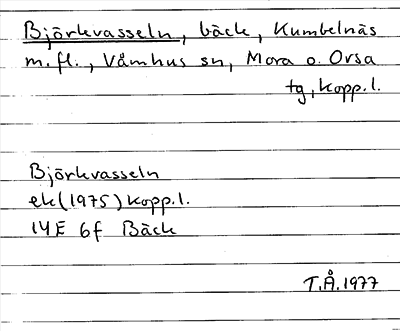 Björkvasseln, bäck, Kumbelnäs
m.fl., Våmhus sn, Mora o. Orsa
tg, Kopp.l.
Björkvasseln
ek(1975) Kopp.l.
14E 6f Bäck
T.Å.1977